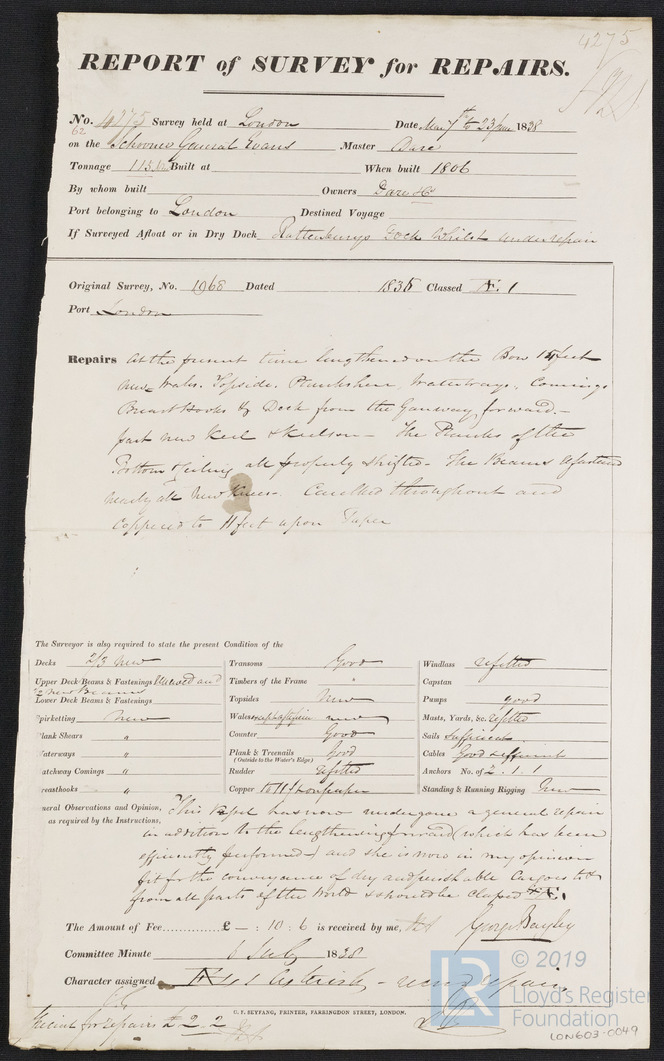 4275
REPORT of SURVEY for REPAIRS.
No. 4275 Survey held at London Date May 7th to 23 June 1838
62
on the Schooner General Evans Master Dare
Tonnage 115 Built at When built 1806
By whom built Owners Dare & Co
Port belonging to London Destined Voyage
If Surveyed Afloat or in Dry Dock Rattenburys Dock Whilst under repair
Original Survey, No. 1968 Dated 1835 Classed Æ.1
Port London
Repairs At the present time lengthened on the Bow 15 feet
New Wales. Topside. Planksheer, Waterways, Comings
Breast Hooks & Deck from the Gangway forward.-
part new Keel & Keelson - The Planks of the
Bottom & Ceiling all properly shifted - The Beams fastened
nearly all New Knees. Caulked throughout and
Coppered to 11 feet upon Paper
The Surveyor is also required to state the present Condition of the
Decks 2/3 New Transoms Good Windlass refitted
Upper Deck Beams & Fastenings Renewed and Timbers of the Frame " Capstan
New Beams
Lower Deck Beams & Fastenings Topsides New Pumps good
Spirketting New Wales new Masts, Yards, &c. refitted
Plank Shears " Counter Good Sails Sufficient
Waterways " Plank & Treenails Good Cables Good & sufficient
(Outside to the Water's Edge)
Hatchway Comings " Rudder refitted Anchors No. of 2.1.1
Breasthooks " Copper to 11 ft on paper Standing & Running Rigging New
General Observations and Opinion, This Vessel has now undergone a general repair
as required by the Instructions, in addition to the lengthening forward (which has been
efficiently performed) and she is now in my opinion
fit for the conveyance of dry and perishable Cargoes to &
from all parts of the World & should be Classed Æ 1
The Amount of Fee............ £ — : 10 : 6 is received by me, George Bayley
Committee Minute 6 July 1838
Character assigned Æ 1 Asterisk - under repairs
C. F. SEYFANG, PRINTER, FARRINGDON STREET, LONDON.
Special for repairs £ 2.2
© 2019
LR
Lloyd's Register
Foundation
LON603-0049